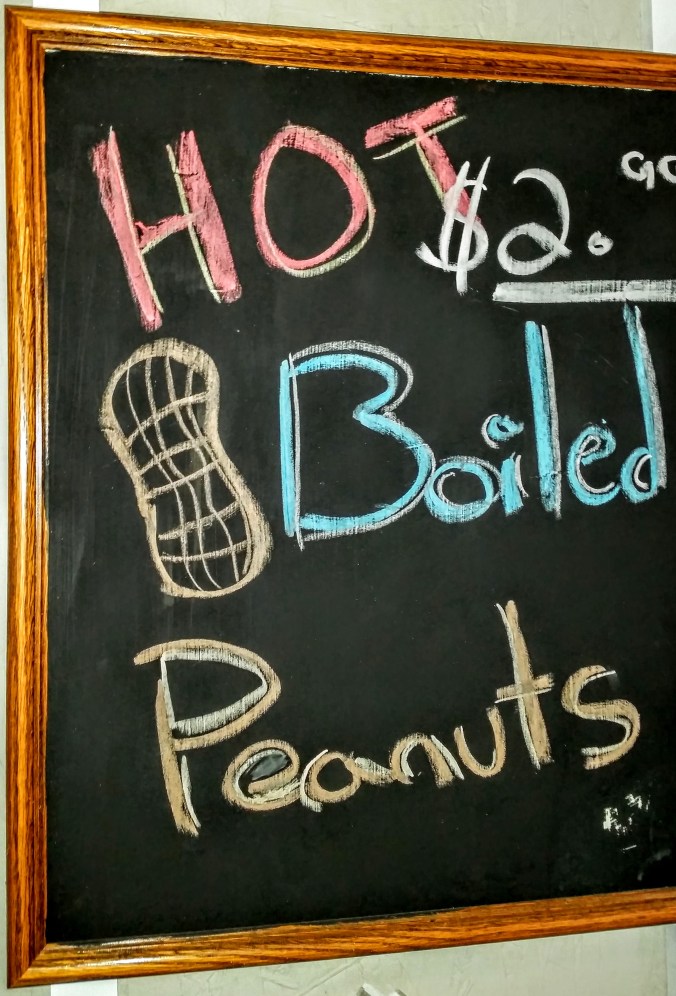 HOT
$2.
Boiled
Peanuts